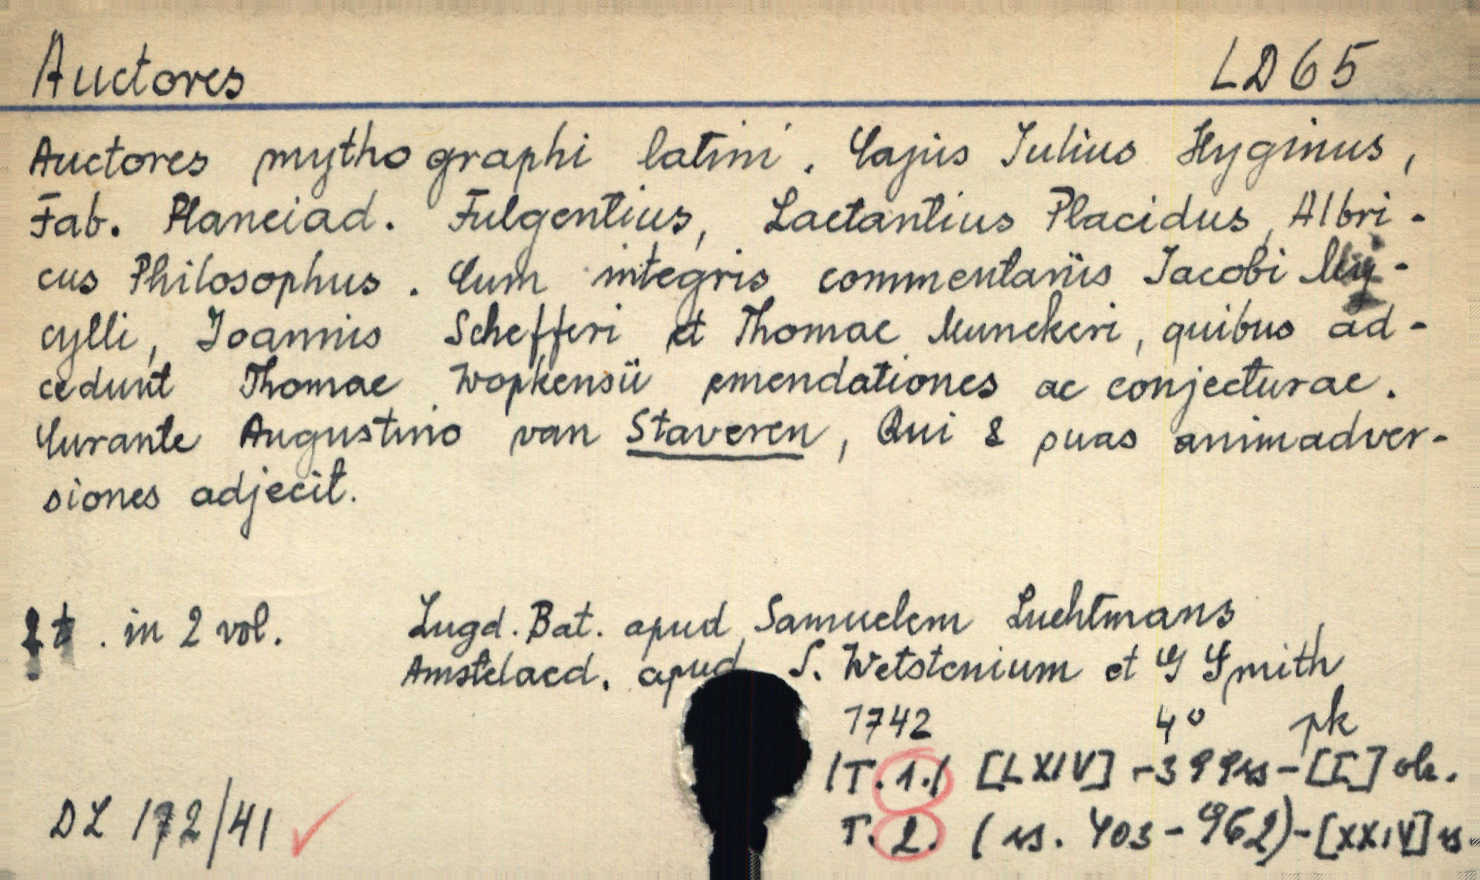 Auctores LD 65
Auctores mythographi latini. Cajus Iulius Hyginus,
Fab. Planciad. Fulgentius, Lactantius Placidus, Albri-
cus Philosophus. Cum integris commentariis Iacobi My-
cylli, Ioannis Schefferi et Thomae Munckeri, quibus ad-
cedunt Thomae Wopkensii emendationes ac conjecturae.
Curante Augustino van Staveren, Qui & suas animadver-
siones adjecit.
2 t. in 2 vol. Lugd. Bat. apud Samuelem Luchtmans
Amstelaed. apud S. Wetstenium et G Smith
1742 4° pk
/T. 1./ [LXIV] - 399 ss - [I] sk.
DL 172/41 T. 2. (ss. 403 - 962) - [XXIV] s.